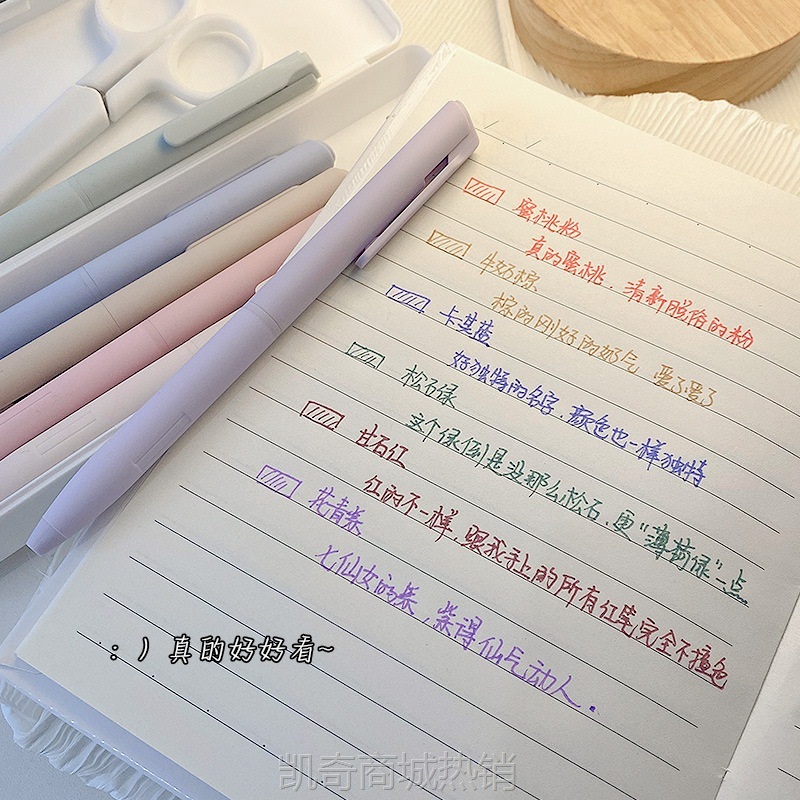 蜜桃粉
真的蜜桃，清新脱俗的粉
牛奶棕
棕的刚好的奶气 爱了爱了
卡其蓝
好独特的名字，颜色也一样独特
松石绿
这个绿倒是没那么松石，更"薄荷绿"一点
甘石红
红的不一样，跟我手上的所有红笔完全不撞色
花青紫
七仙女的紫，紫得仙气动人．
：）真的好好看~
凯奇商城热销